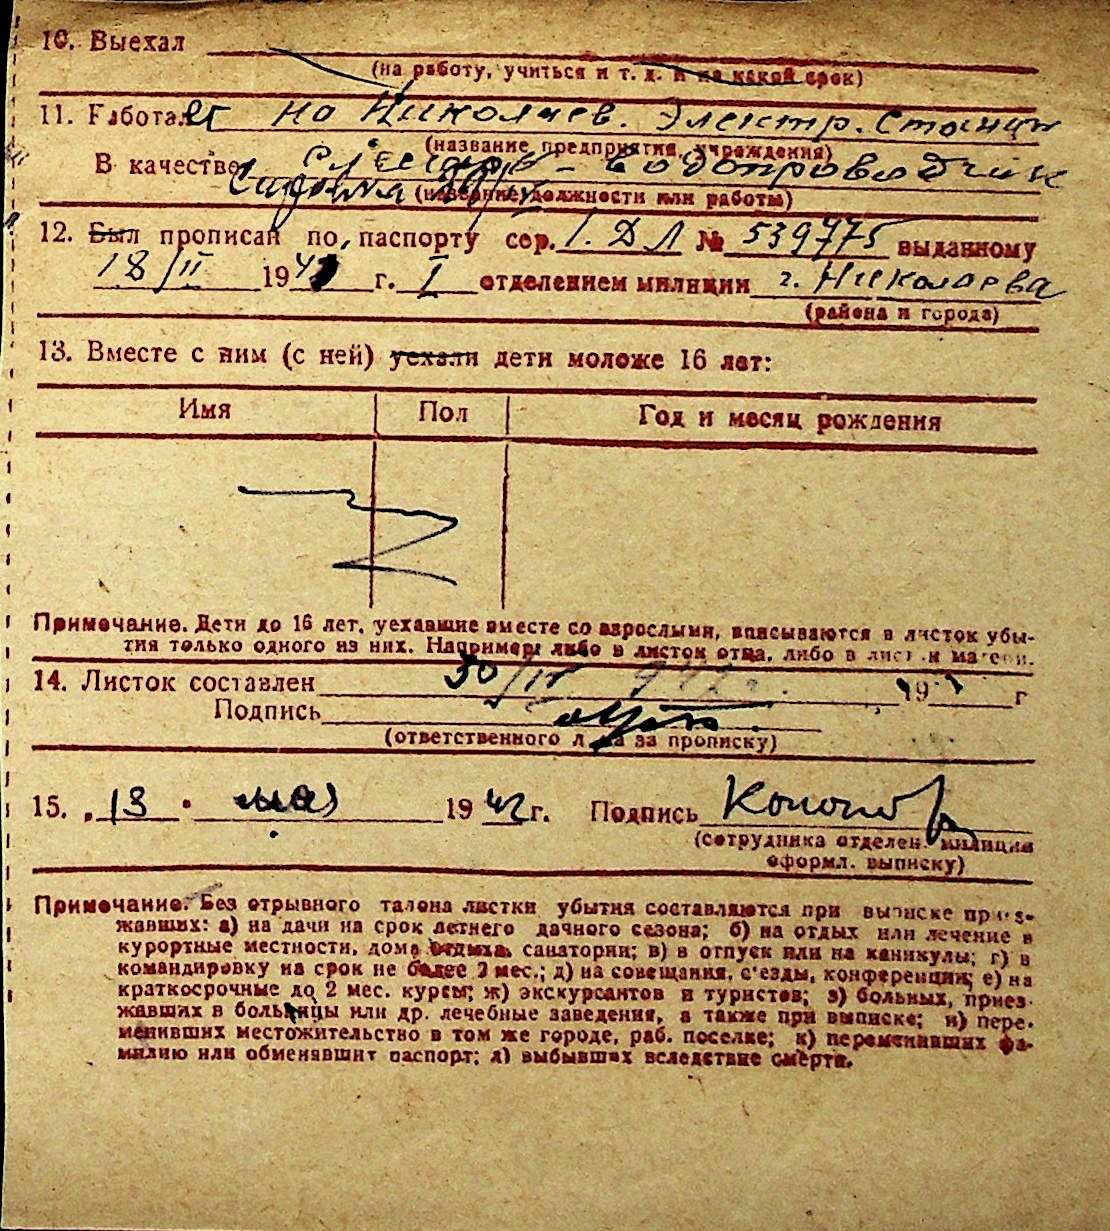 10. Выехал
(на работу, учиться и т. д. и на какой срок)
11. Работает на Николаев. Электр. Станци
(название предприятия, учреждения)
В качестве Слесарь-водопроводчик
(наверние должности или работы)
12. Был прописан по паспорту сер. I. ДЛ № 539775 выданному
18/II 194 г. I отделением милиции г. Николаева
(района и города)
13. Вместе с ним (с ней) уехали дети моложе 16 лет:
Имя Пол Год и месяц рождения
Примечание. Дети до 16 лет, уехавшие вместе со взрослыми, вписываются в листок убы-
тия только одного из них. Например: либо в листок отца, либо в листок матери.
14. Листок составлен 30/IV 942 г. 19 г
Подпись
(ответственного лица за прописку)
15. „13 " мая 1942 г. Подпись Кононов
(сотрудника отделен. милиции
оформл. выписку)
Примечание. Без отрывного талона листки убытия составляются при выписке приез-
жавших: а) на дачи на срок летнего дачного сезона; б) на отдых или лечение в
курортные местности, дома отдыха, санатории; в) в отпуск или на каникулы; г) в
командировку на срок не более 2 мес.; д) на совещания, с'езды, конференции; е) на
краткосрочные до 2 мес. курсы; ж) экскурсантов и туристов; з) больных, приез-
жавших в больницы или др. лечебные заведения, а также при выписке; и) пере-
менивших местожительство в том же городе, раб. поселке; к) переменивших фа-
милию или обменявшит паспорт; л) выбывших вследствие смерти.